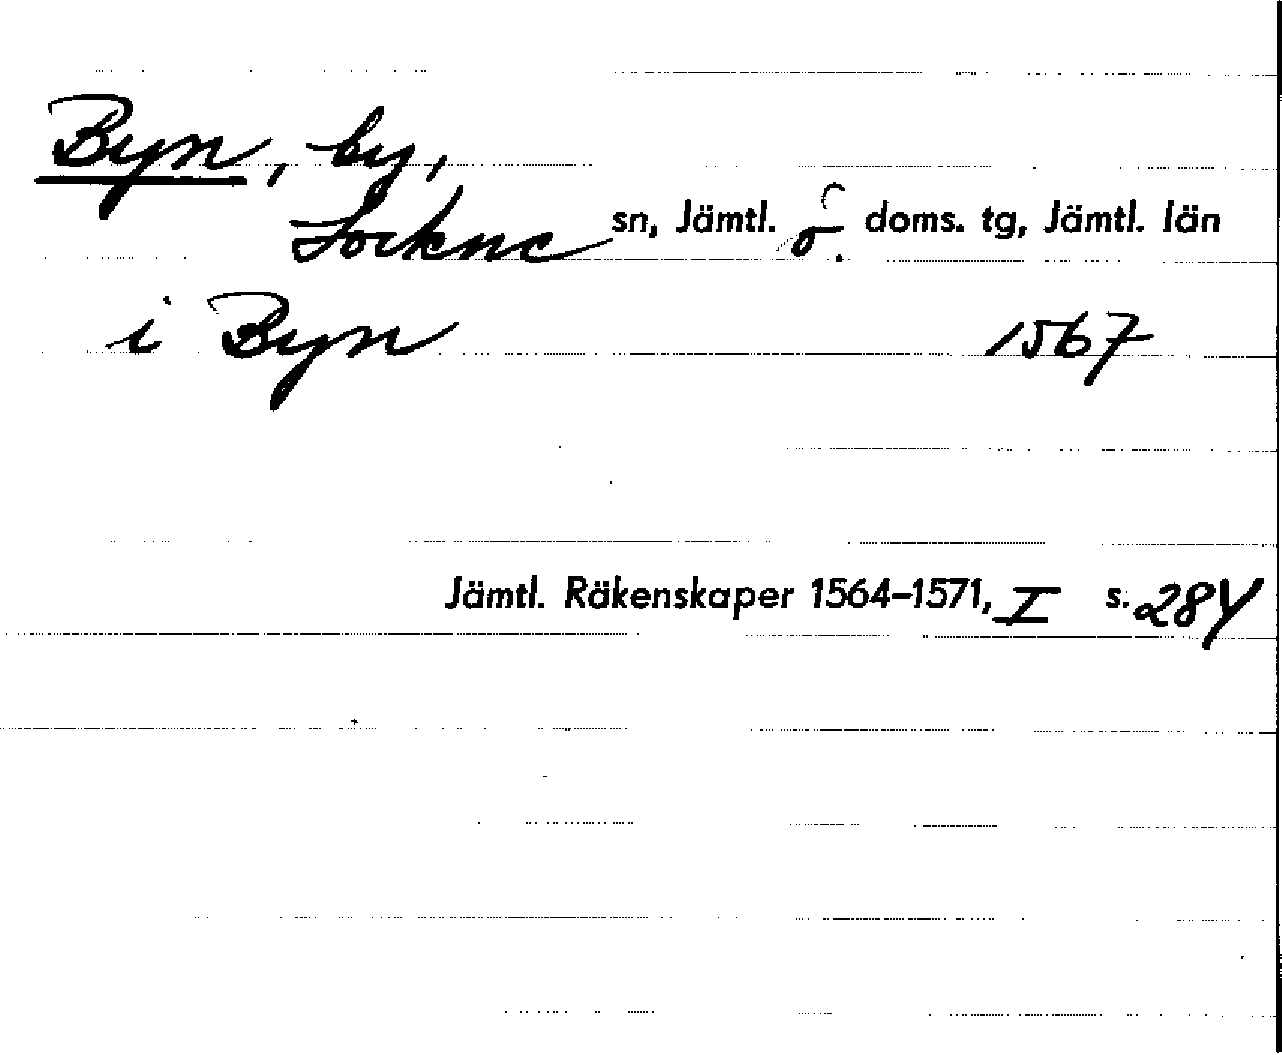 Byn, by,
Lockne sn, Jämtl. ö. doms. tg, Jämtl. län
i Byn 1567
Jämtl. Räkenskaper 1564–1571, I s. 284